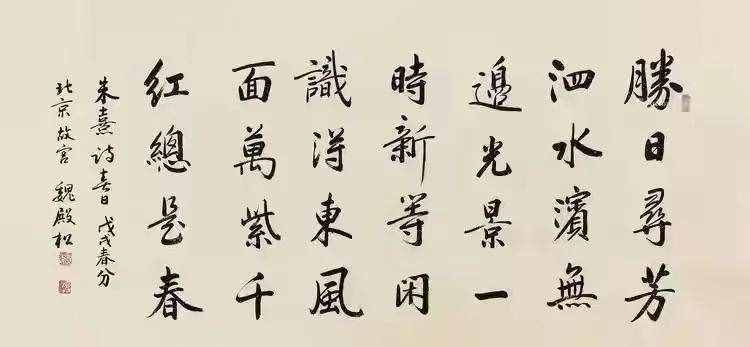 勝日尋芳
泗水濱無
邊光景一
時新等閑
識得東風
面萬紫千
紅總是春
朱熹詩春日 戊戌春分
北京故宮 魏殿松